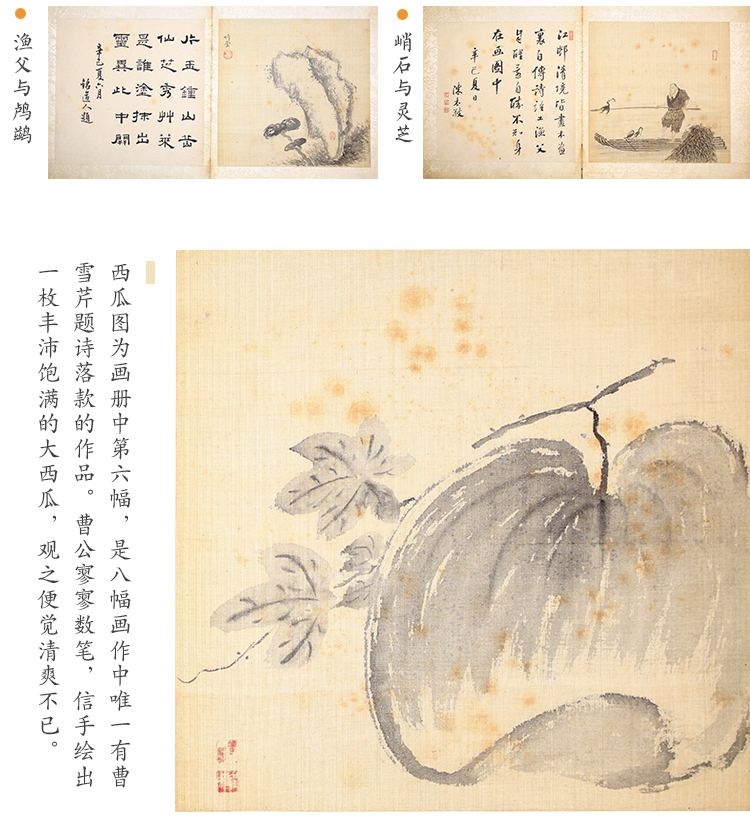 渔父与鸬鹚
片玉鍾山
仙芝秀艸萊
是誰塗抹出
靈異此中開
辛巳夏六月
道人題
峭石与灵芝
江邨清境皆畫本畫
裏自傳詩語工漁父
自醒還自醉不知身
在画圖中
辛巳夏日
陳本敬
西瓜图为画册中第六幅，是八幅画作中唯一有曹
雪芹题诗落款的作品。曹公寥寥数笔，信手绘出
一枚丰沛饱满的大西瓜，观之便觉清爽不已。